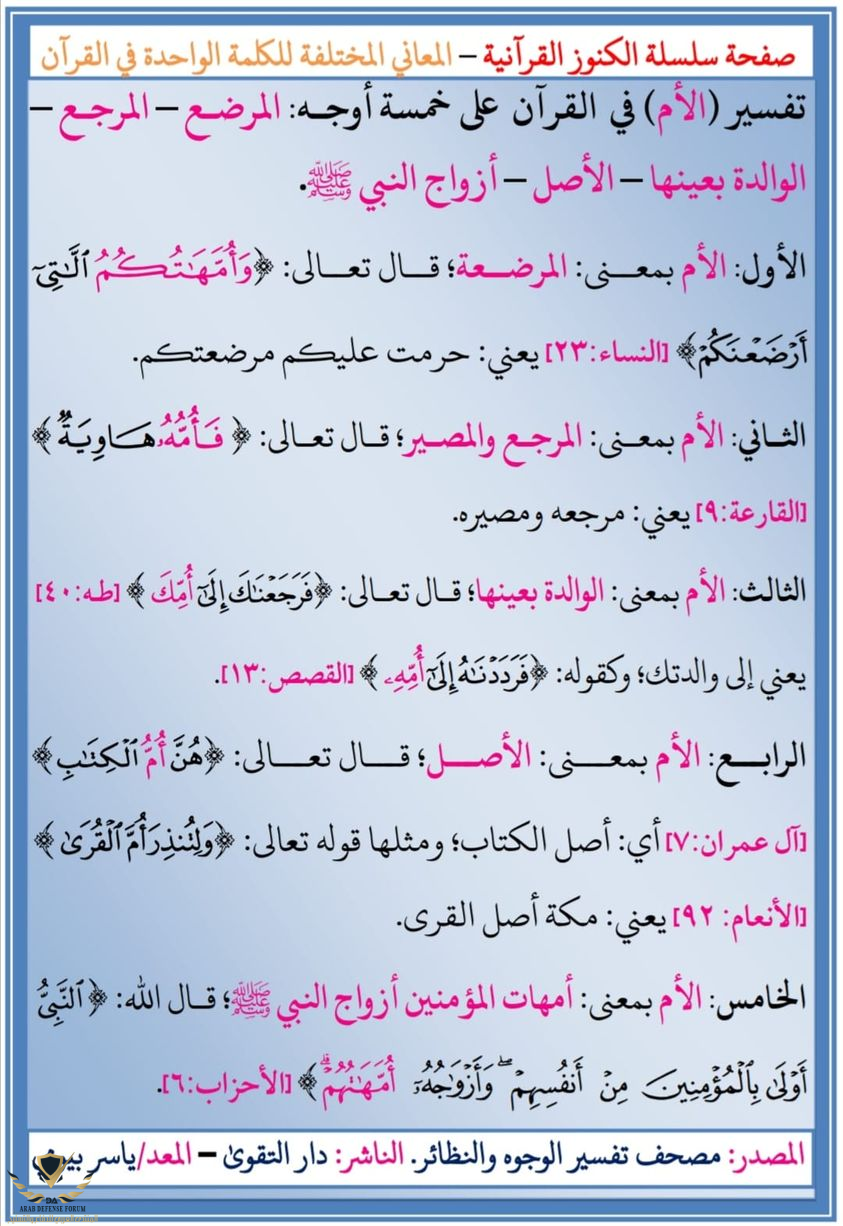 صفحة سلسلة الكنوز القرآنية – المعاني المختلفة للكلمة الواحدة في القرآن
تفسير (الأم) في القرآن على خمسة أوجه: المرضع – المرجع –
الوالدة بعينها – الأصل – أزواج النبي ﷺ.
الأول: الأم بمعنى: المرضعة؛ قال تعالى: ﴿وَأُمَّهَٰتُكُمُ ٱلَّٰتِىٓ
أَرْضَعْنَكُمْ﴾ [النساء:٢٣] يعني: حرمت عليكم مرضعتكم.
الثاني: الأم بمعنى: المرجع والمصير؛ قال تعالى: ﴿ فَأُمُّهُۥ هَاوِيَةٌ ﴾
[القارعة:٩] يعني: مرجعه ومصيره.
الثالث: الأم بمعنى: الوالدة بعينها؛ قال تعالى: ﴿فَرَجَعْنَٰكَ إِلَىٰٓ أُمِّكَ ﴾ [طه:٤٠]
يعني إلى والدتك؛ وكقوله: ﴿فَرَدَدْنَٰهُ إِلَىٰٓ أُمِّهِۦ ﴾ [القصص:١٣].
الرابع: الأم بمعنى: الأصل؛ قال تعالى: ﴿هُنَّ أُمُّ ٱلْكِتَٰبِ﴾
[آل عمران:٧] أي: أصل الكتاب؛ ومثلها قوله تعالى: ﴿وَلِتُنذِرَ أُمَّ ٱلْقُرَىٰ ﴾
[الأنعام: ٩٢] يعني: مكة أصل القرى.
الخامس: الأم بمعنى: أمهات المؤمنين أزواج النبي ﷺ؛ قال الله: ﴿ ٱلنَّبِىُّ
أَوْلَىٰ بِٱلْمُؤْمِنِينَ مِنْ أَنفُسِهِمْ ۖ وَأَزْوَٰجُهُۥٓ أُمَّهَٰتُهُمْ ۗ﴾ [الأحزاب:٦].
المصدر: مصحف تفسير الوجوه والنظائر. الناشر: دار التقوىٰ – المعد/ياسر
ARAB DEFENSE FORUM